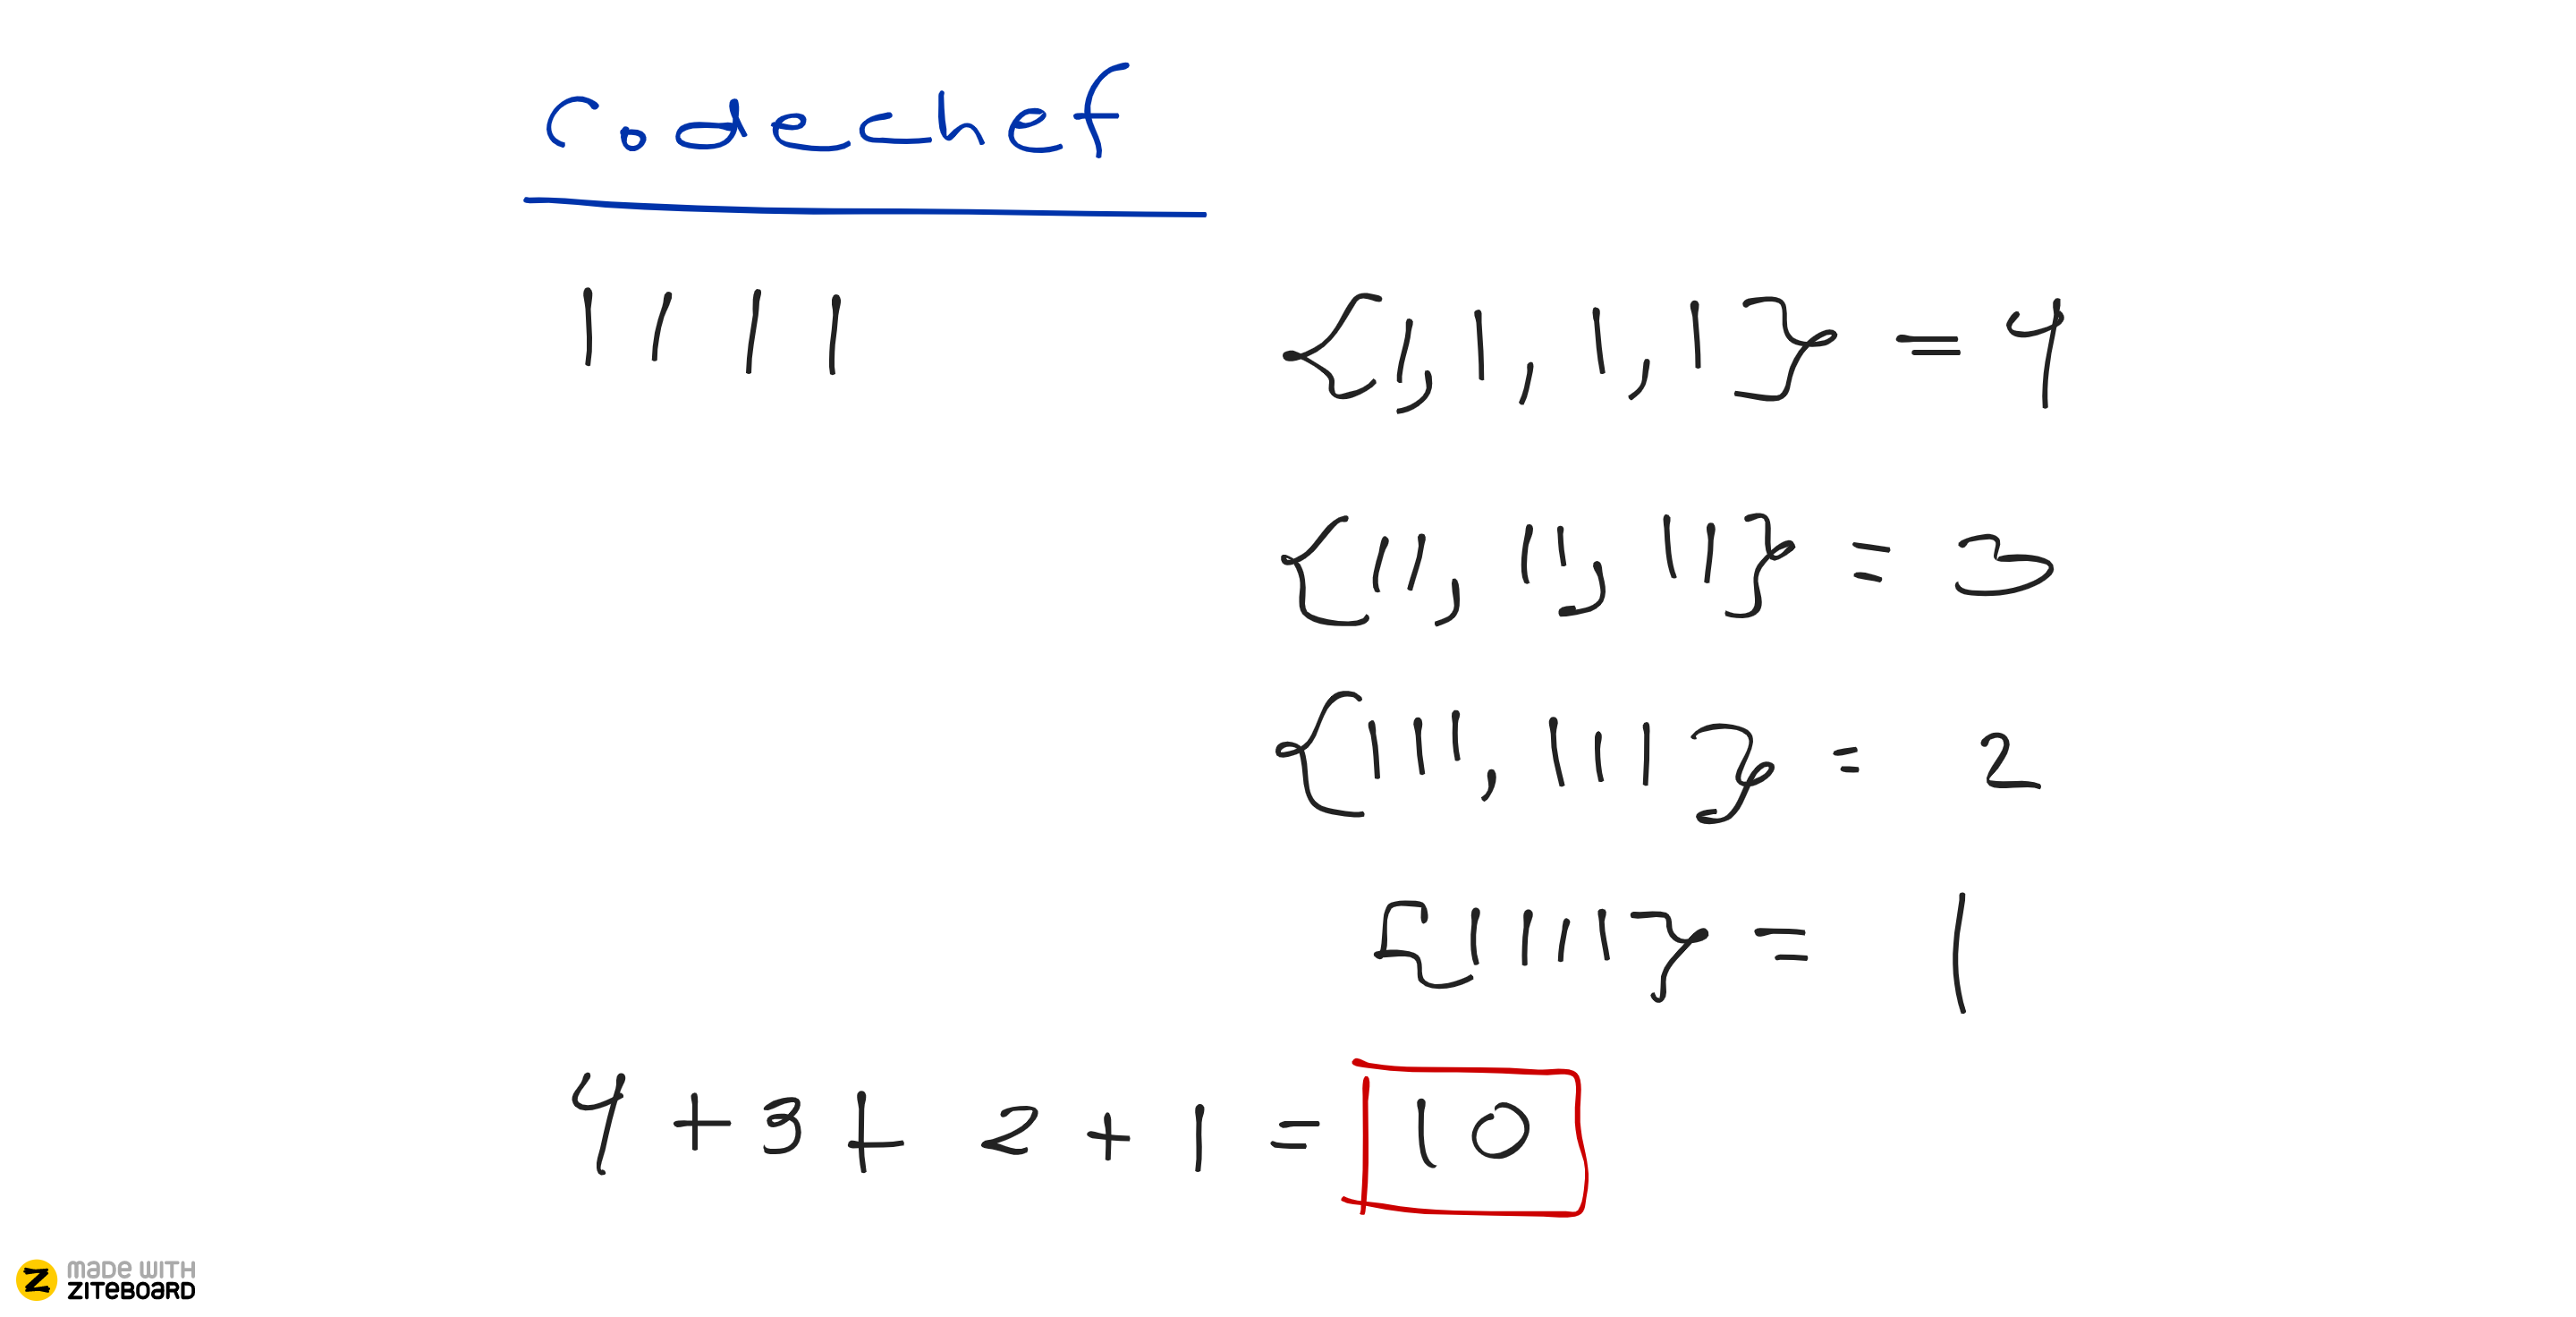 codechef
1 1 1 1
{1, 1, 1, 1} = 4
{11, 11, 11} = 3
{111, 111} = 2
{1111} = 1
4 + 3 + 2 + 1 = 10
MADE WITH
ZITEBOARD